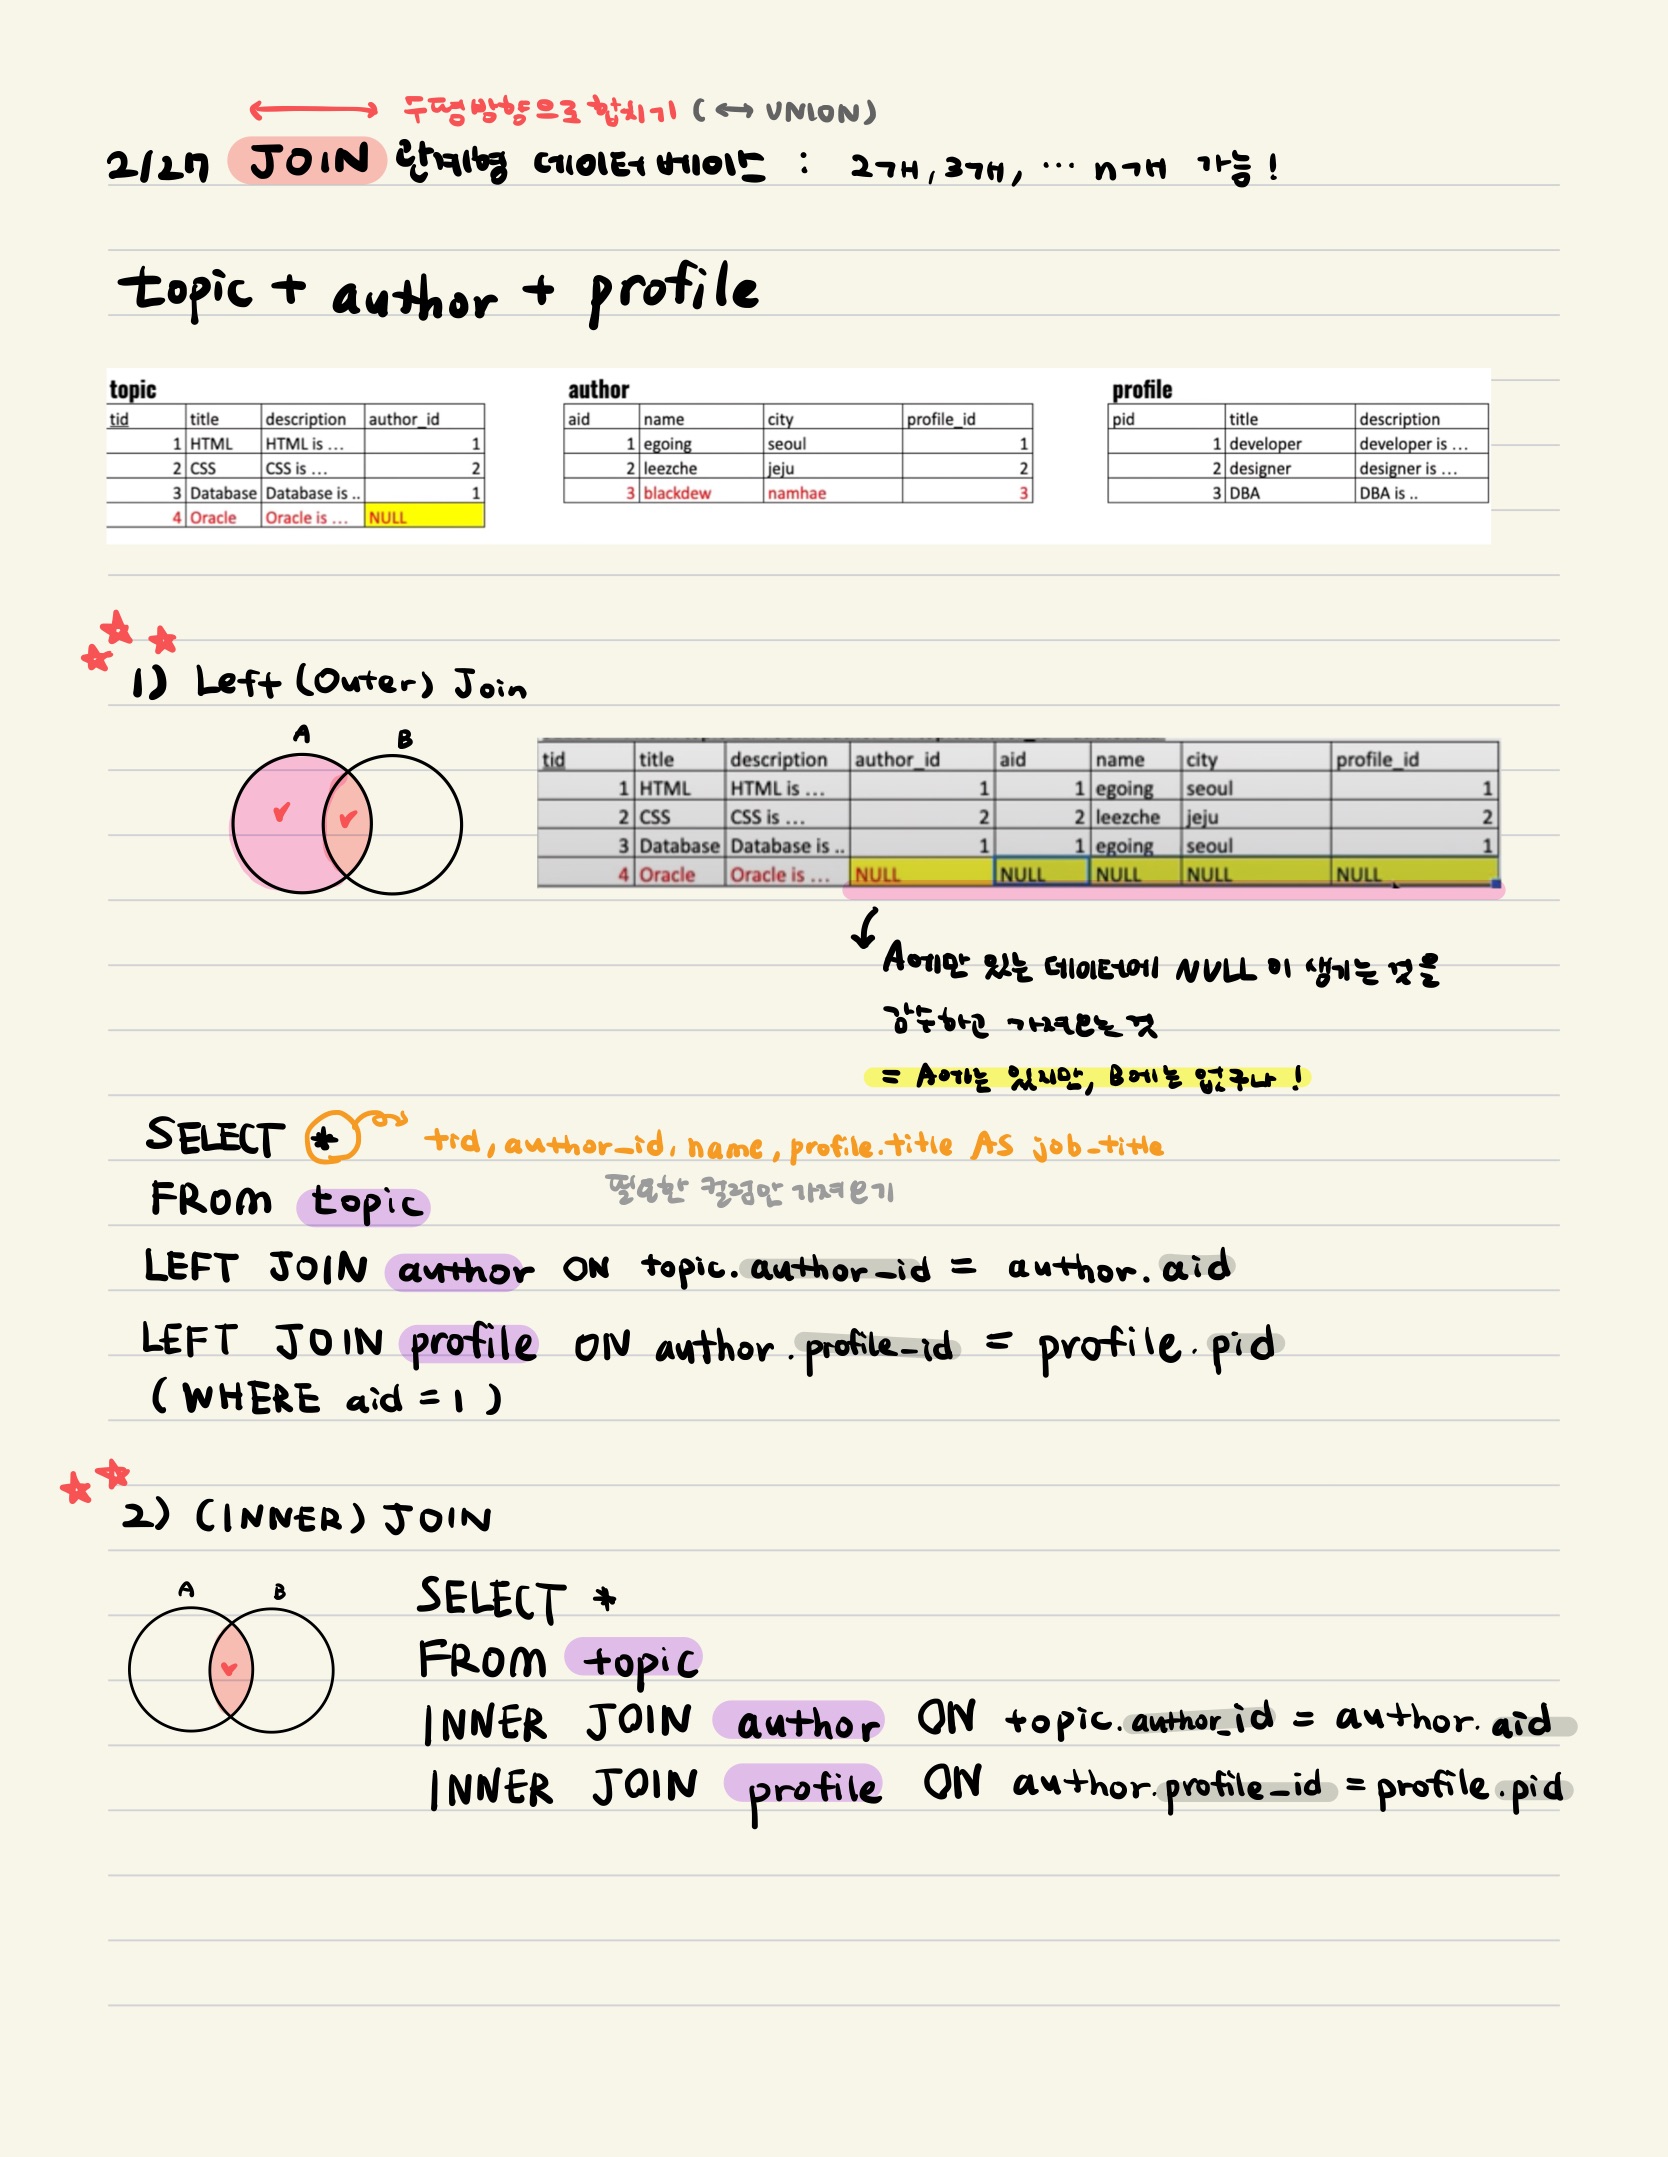 수평방향으로 합치기 (↔ UNION)
2/27 JOIN 관계형 데이터베이스 : 2개, 3개, … n개 가능!
topic + author + profile
topic
tid title description author_id
1 HTML HTML is ... 1
2 CSS CSS is ... 2
3 Database Database is .. 1
4 Oracle Oracle is ... NULL
author
aid name city profile_id
1 egoing seoul 1
2 leezche jeju 2
3 blackdew namhae 3
profile
pid title description
1 developer developer is ...
2 designer designer is ...
3 DBA DBA is ..
1) Left (Outer) Join
A B
tid title description author_id aid name city profile_id
1 HTML HTML is ... 1 1 egoing seoul 1
2 CSS CSS is ... 2 2 leezche jeju 2
3 Database Database is .. 1 1 egoing seoul 1
4 Oracle Oracle is ... NULL NULL NULL NULL NULL
A에만 있는 데이터에 NULL이 생기는 것을
감수하고 가져오는 것
= A에는 있지만, B에는 없구나!
SELECT * tid, author_id, name, profile.title AS job_title
필요한 컬럼만 가져오기
FROM topic
LEFT JOIN author ON topic.author_id = author.aid
LEFT JOIN profile ON author.profile_id = profile.pid
(WHERE aid = 1)
2) (INNER) JOIN
A B
SELECT *
FROM topic
INNER JOIN author ON topic.author_id = author.aid
INNER JOIN profile ON author.profile_id = profile.pid